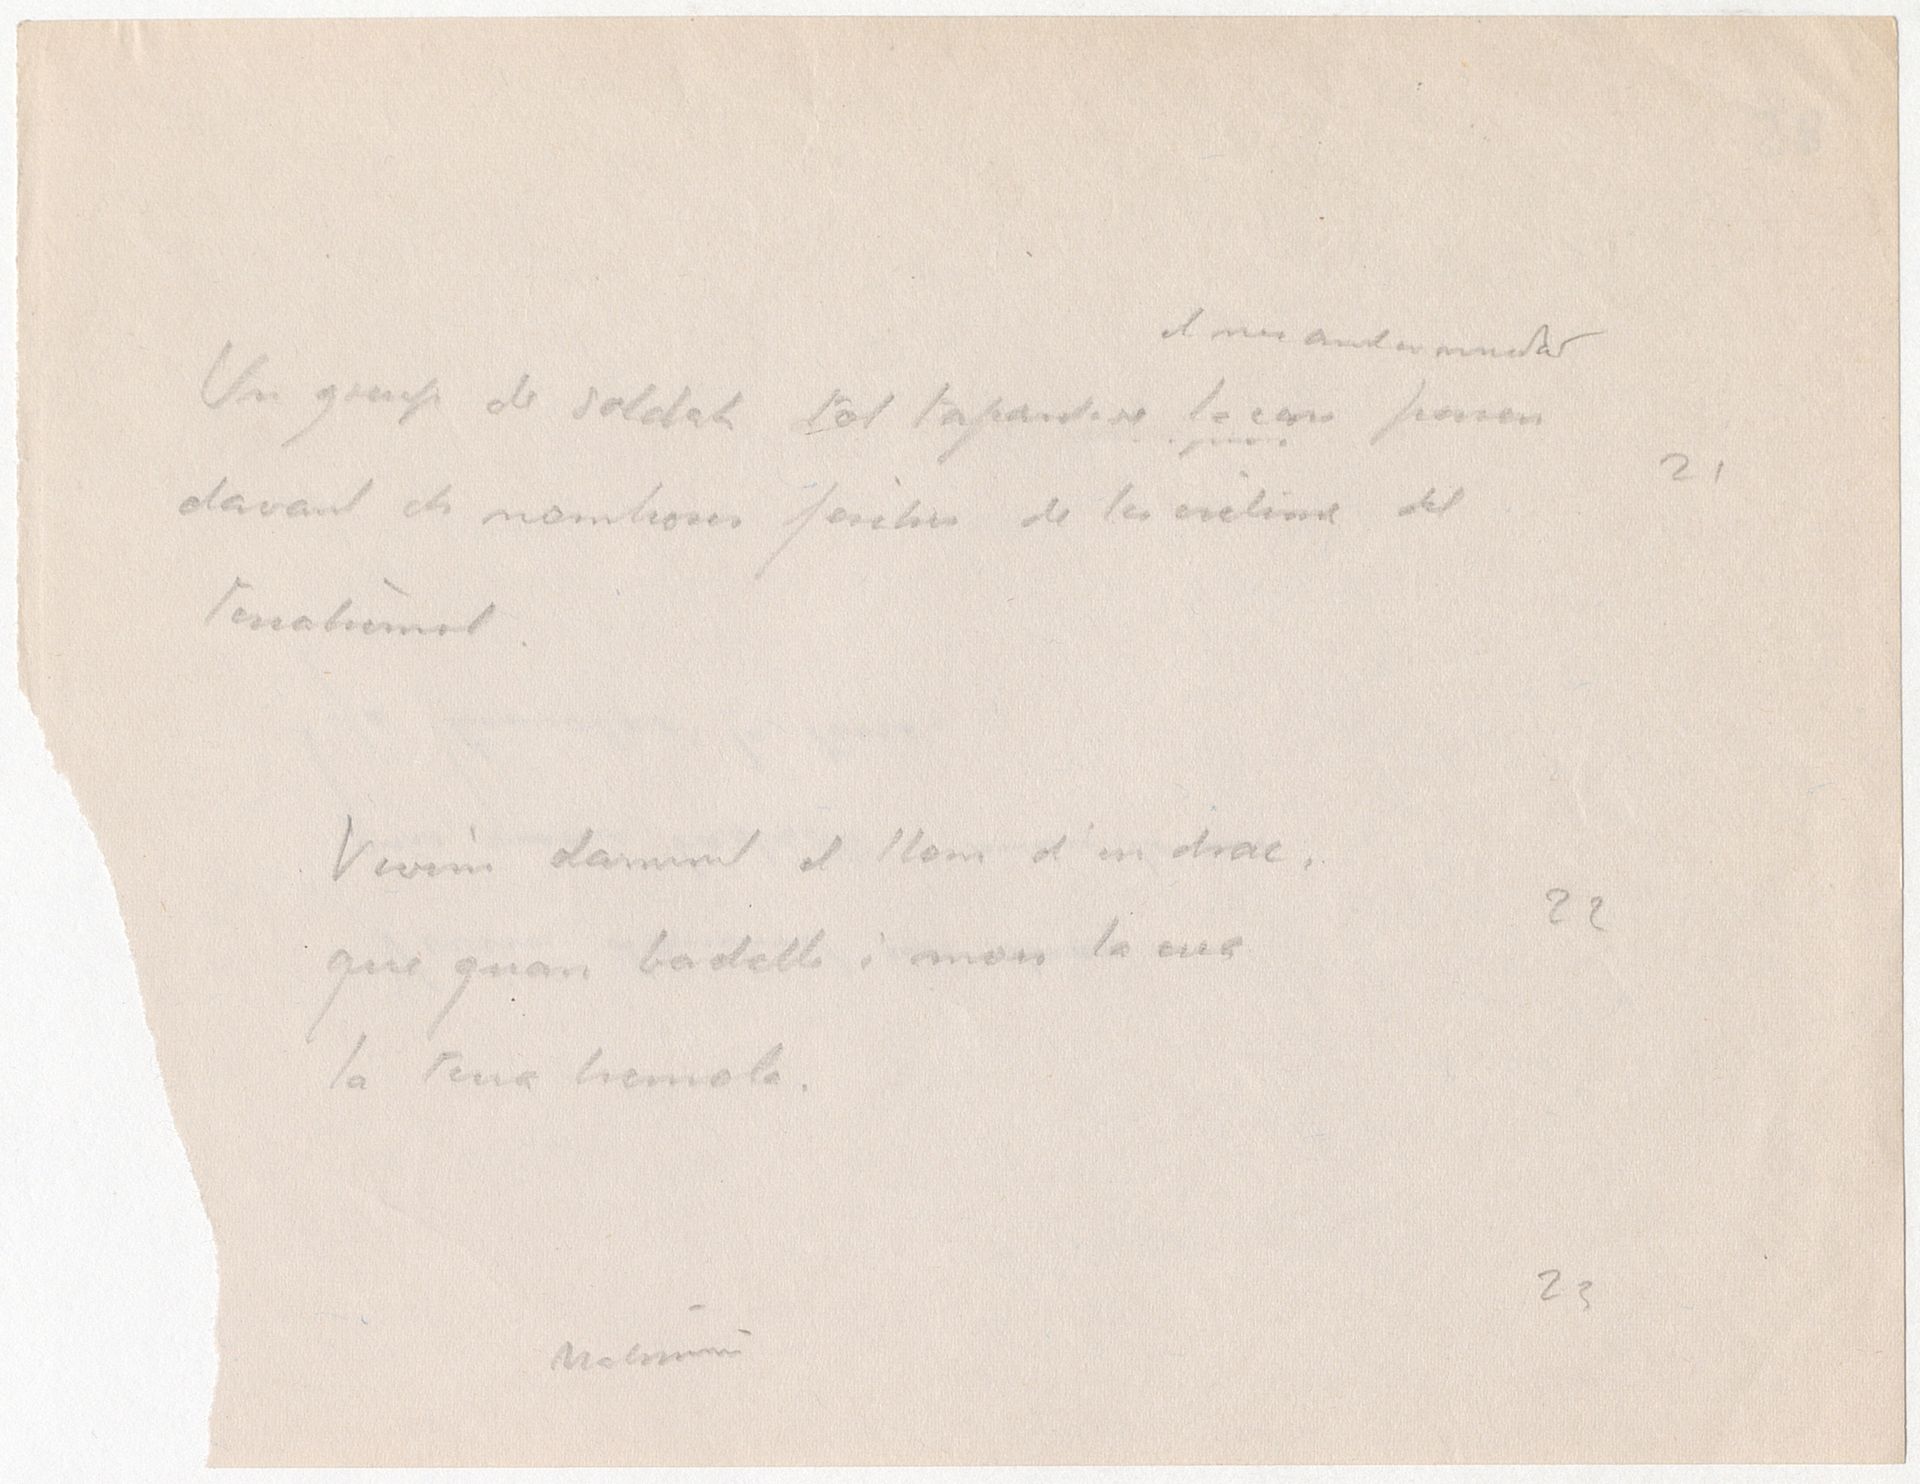 el nas amb un mocador
Un grup de soldats tot tapant-se la cara passen
davant els nombroses fosses de les víctimes del
Terratrèmol.
21
Vivim damunt el llom d'un drac,
que quan badalla i mou la cua
22
la terra tremola.
23